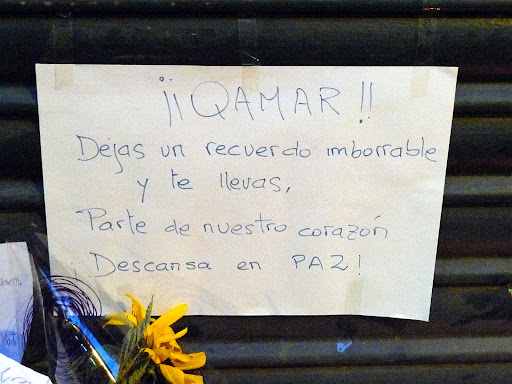 ¡¡QAMAR!!
Dejas un recuerdo imborrable
y te llevas,
Parte de nuestro corazón
¡Descansa en PAZ!